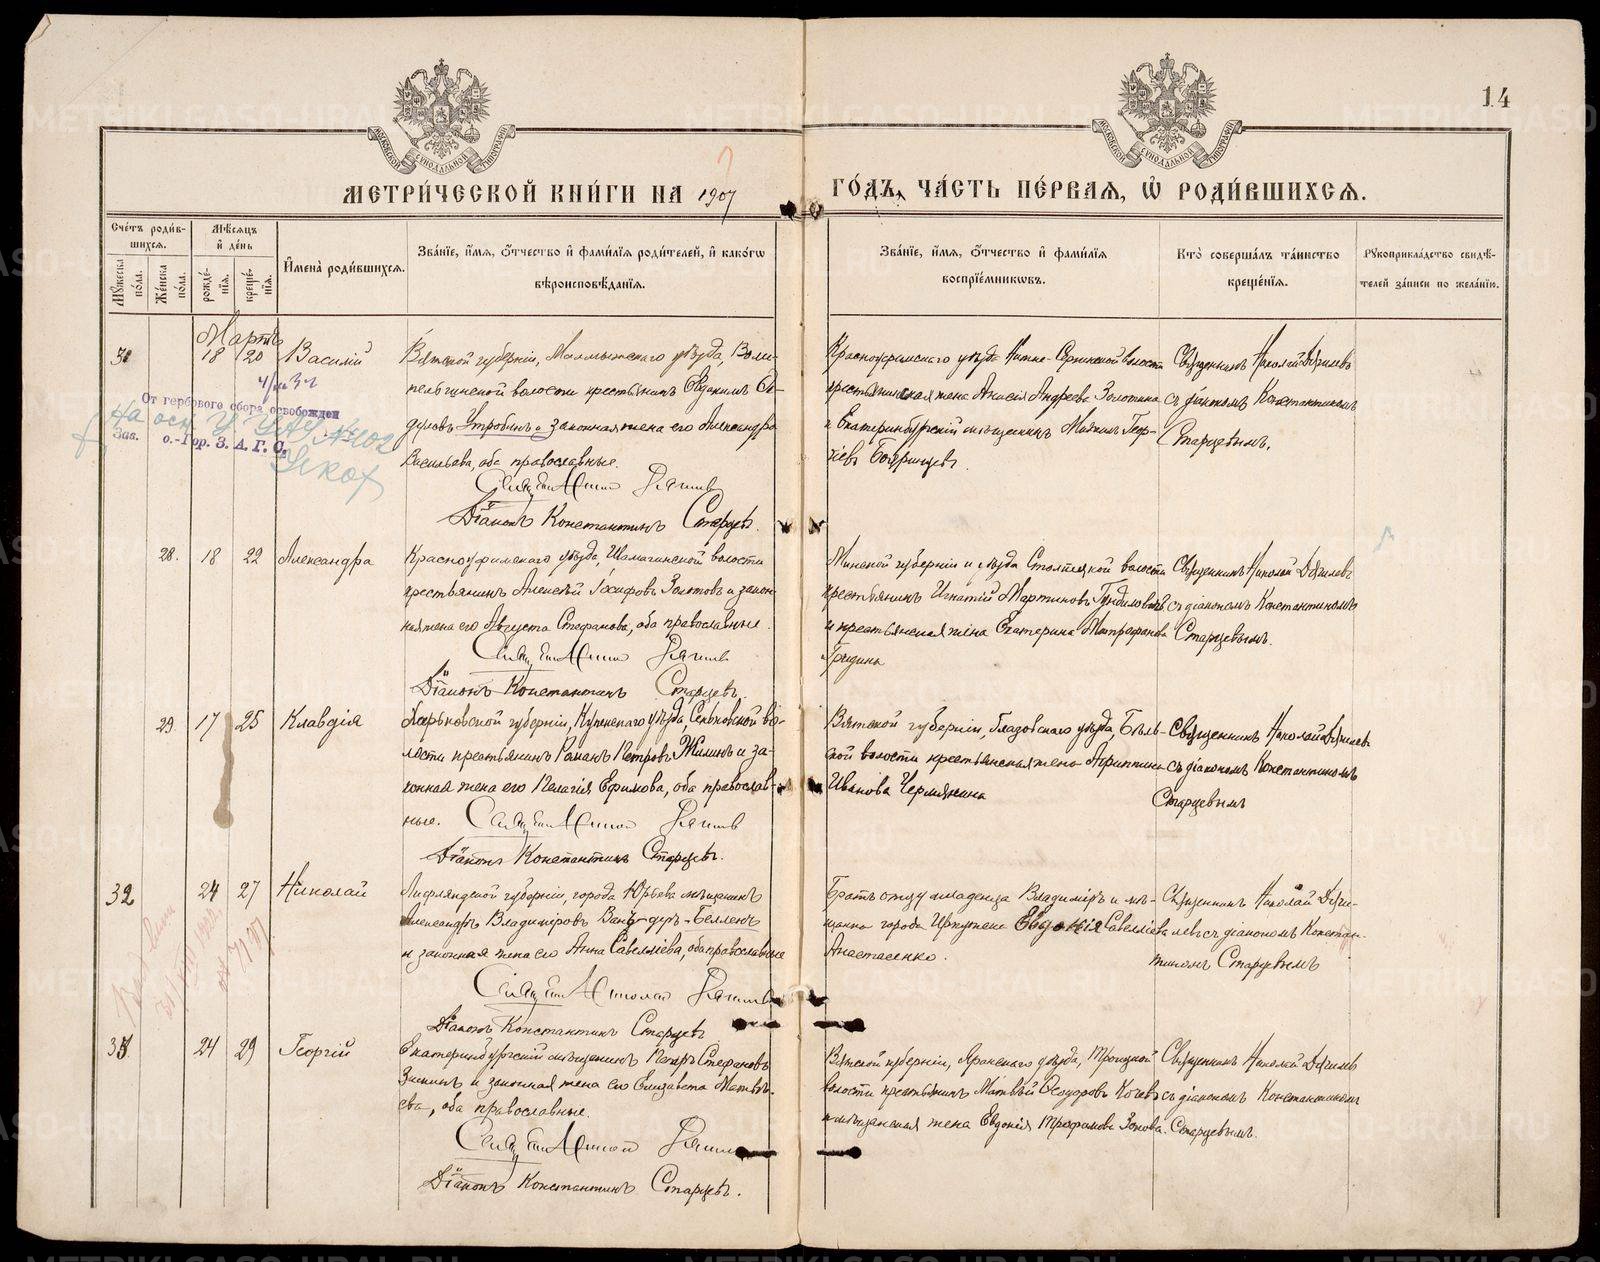 14
МОСКОВСКОЙ СѴНОДАЛЬНОЙ ТИПОГРАФІИ
МОСКОВСКОЙ СѴНОДАЛЬНОЙ ТИПОГРАФІИ
МЕТРИ́ЧЕСКОЙ КНИ́ГИ НА 1907
ГО́ДЪ, ЧА́СТЬ ПЕ́РВАЯ, Ѡ҆ РОДИ́ВШИХСЯ.
Сче́тъ роди́в-
шихся.
Мѣ́сяцъ
и҆ де́нь
Мꙋ́жеска по́ла.
Же́нска по́ла.
рожде́-
нїя.
креще́-
нїя.
И҆мена̀ роди́вшихся.
Зва́нїе, и҆́мя, ѻ҆́тчество и҆ фами́лїя роди́телей, и҆ како́гѡ
вѣроисповѣ́данїя.
Зва́нїе, и҆́мя, ѻ҆́тчество и҆ фами́лїя
воспрїе́мникѡвъ.
Кто̀ соверша́лъ та́инство
креще́нїя.
Рꙋкоприкла́дство свидѣ́-
телей за́писи по жела́нїю.
Мартъ
31
18
20
Василій
Вятской губерніи, Малмыжскаго уѣзда,
волости крестьянинъ Евдокимъ
Утробинъ и законная жена его Александра
Васильева, оба православные.
Діаконъ Константинъ Старцевъ.
Красноуфимскаго уѣзда Нижне-Сергинской волости
крестьянская жена Анисія Андреева Золотина
и Екатеринбургскій мѣщанинъ Геор-
гіевъ Бояринцевъ.
Священникъ Николай Дягилевъ
съ діакономъ Константиномъ
Старцевымъ.
От гербового сбора освобожден
На осн.
Зав. о.-Гор. З. А. Г. С.
28.
18
22
Александра
Красноуфимскаго уѣзда, Шамагинской волости
крестьянинъ Алексѣй Іосифовъ Золотовъ и закон-
ная жена его Августа Стефанова, оба православные.
Діаконъ Константинъ Старцевъ.
Минской губерніи и уѣзда волости
крестьянинъ Игнатій Мартиновъ
и крестьянская жена Екатерина Митрофанова
Гридина
Священникъ Николай Дягилевъ
съ діакономъ Константиномъ
Старцевымъ.
29.
17
25
Клавдія
Харьковской губерніи, Купенскаго уѣзда, во-
лости крестьянинъ Романъ Петровъ Жилинъ и за-
конная жена его Пелагія Ефимова, оба православ-
ные.
Діаконъ Константинъ Старцевъ.
Вятской губерніи, Глазовскаго уѣзда, Бѣль-
ской волости крестьянская жена Агриппина
Иванова Чермянина
Священникъ Николай Дягилевъ
съ діакономъ Константиномъ
Старцевымъ
32
24
27
Николай
Лифляндской губерніи, города Юрьева мѣщанинъ
Александръ Владиміровъ Ванъ-деръ-Белленъ
и законная жена его Анна Савельева, оба православные
Діаконъ Константинъ Старцевъ
Братъ отцу младенца Владиміръ и мѣ-
щанка города Иркутска Евдокія Савельева
Анастасенко.
Священникъ Николай Дяги-
левъ съ діакономъ Констан-
тиномъ Старцевымъ
33.
24
29
Георгій
Екатеринбургскій мѣщанинъ Петръ Стефановъ
и законная жена его Елизавета Матвѣ-
ева, оба православные.
Діаконъ Константинъ Старцевъ.
Вятской губерніи, Яранскаго уѣзда, Троицкой
волости крестьянинъ Матвѣй Ѳеодоровъ
и мѣщанская жена Евдокія Трофимова Зонова.
Священникъ Николай Дягилевъ
съ діакономъ Константиномъ
Старцевымъ.